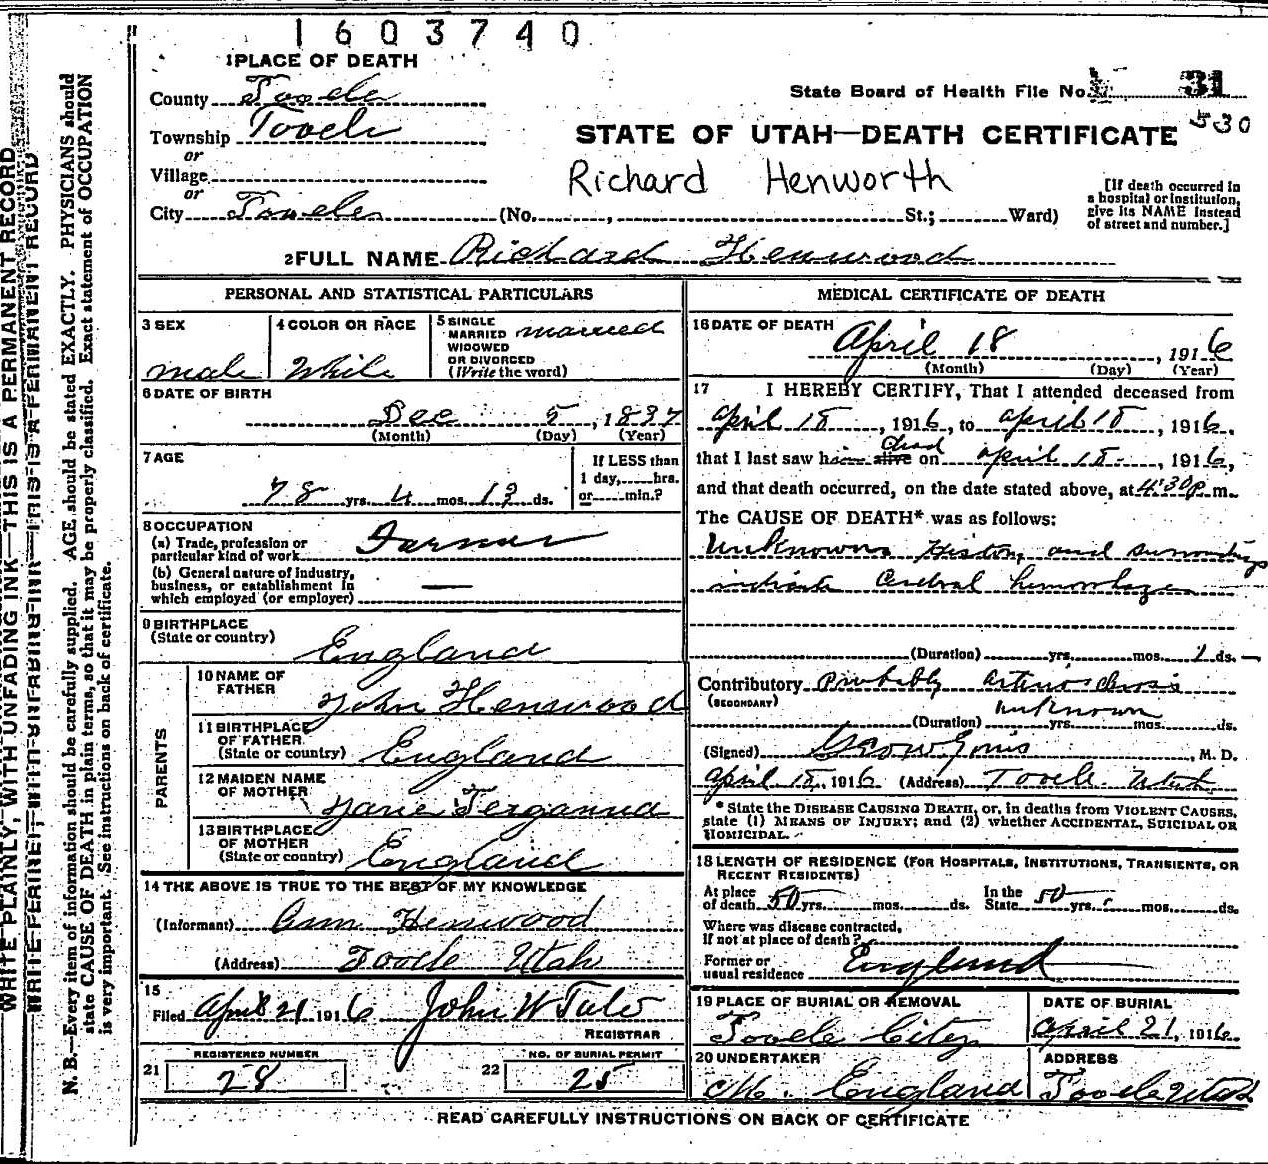 1603740
1 PLACE OF DEATH
County Tooele
State Board of Health File No. 31
530
Township Tooele
or
STATE OF UTAH—DEATH CERTIFICATE
Village
or
Richard Henworth
[If death occurred in
a hospital or institution,
give its NAME instead
of street and number.]
City Tooele (No. , St.; Ward)
2 FULL NAME Richard Henwood
PERSONAL AND STATISTICAL PARTICULARS
3 SEX
male
4 COLOR OR RACE
White
5 SINGLE
MARRIED
WIDOWED
OR DIVORCED
(Write the word)
married
6 DATE OF BIRTH
Dec 5, 1837
(Month) (Day) (Year)
7 AGE
78 yrs. 4 mos. 13 ds.
If LESS than
1 day, hrs.
or min.?
8 OCCUPATION
(a) Trade, profession or
particular kind of work Farmer
(b) General nature of industry,
business, or establishment in
which employed (or employer) —
9 BIRTHPLACE
(State or country)
England
PARENTS
10 NAME OF
FATHER
John Henwood
11 BIRTHPLACE
OF FATHER
(State or country) England
12 MAIDEN NAME
OF MOTHER
13 BIRTHPLACE
OF MOTHER
(State or country) England
14 THE ABOVE IS TRUE TO THE BEST OF MY KNOWLEDGE
(Informant) Henwood
(Address) Tooele Utah
15
Filed April 21 1916 John W Tate
REGISTRAR
21
REGISTERED NUMBER
28
22
NO. OF BURIAL PERMIT
25
MEDICAL CERTIFICATE OF DEATH
16 DATE OF DEATH
April 18, 1916
(Month) (Day) (Year)
17 I HEREBY CERTIFY, That I attended deceased from
April 18, 1916, to April 18, 1916.
that I last saw him alive dead on April 18, 1916,
and that death occurred, on the date stated above, at 4:30 p m.
The CAUSE OF DEATH* was as follows:
Unknown History and surroundings
indicate Cerebral hemorrhage
(Duration) yrs. mos. 1 ds.
Contributory Probably Arteriosclerosis
(SECONDARY) unknown
(Duration) yrs. mos. ds.
(Signed) , M. D.
April 18, 1916 (Address) Tooele Utah
* State the DISEASE CAUSING DEATH, or, in deaths from VIOLENT CAUSES,
state (1) MEANS OF INJURY; and (2) whether ACCIDENTAL, SUICIDAL OR
HOMICIDAL.
18 LENGTH OF RESIDENCE (FOR HOSPITALS, INSTITUTIONS, TRANSIENTS, OR
RECENT RESIDENTS)
At place
of death 50 yrs. mos. ds.
In the
State 50 yrs. mos. ds.
Where was disease contracted,
If not at place of death?
Former or
usual residence England
19 PLACE OF BURIAL OR REMOVAL
Tooele City
DATE OF BURIAL
April 21, 1916
20 UNDERTAKER
England
ADDRESS
Tooele Utah
READ CAREFULLY INSTRUCTIONS ON BACK OF CERTIFICATE
WRITE PLAINLY, WITH UNFADING INK—THIS IS A PERMANENT RECORD
N. B.—Every item of information should be carefully supplied. AGE should be stated EXACTLY. PHYSICIANS should
state CAUSE OF DEATH in plain terms, so that it may be properly classified. Exact statement of OCCUPATION
is very important. See instructions on back of certificate.